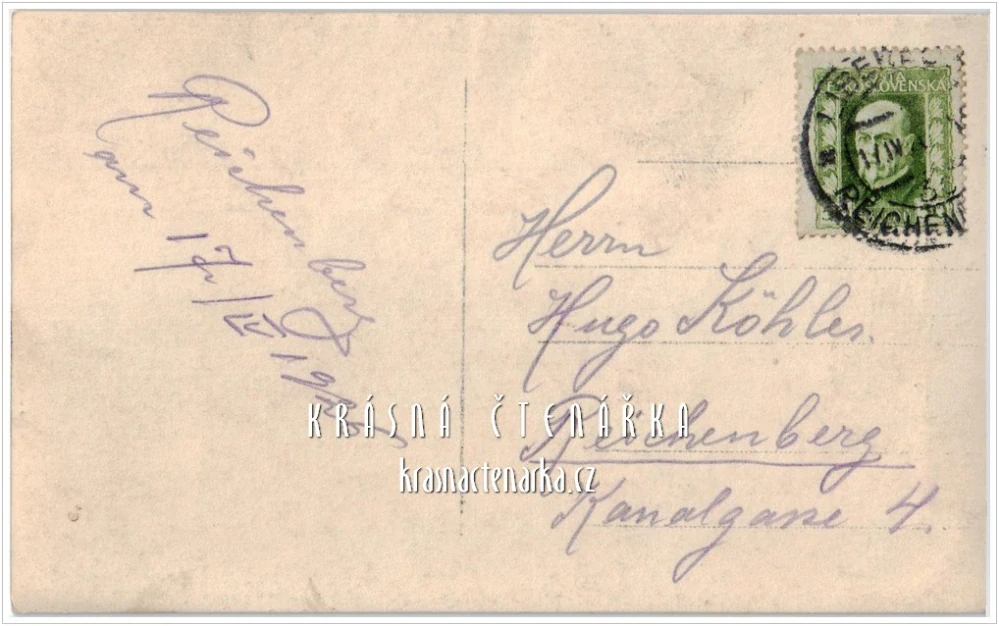 Reichenberg
am 17/IV 19
POŠTA
ČESKOSLOVENSKÁ
LIBEREC
17.IV
REICHEN
Herrn
Hugo Köhler.
Reichenberg
Kanalgasse 4.
KRÁSNÁ ČTENÁŘKA
krasnactenarka.cz